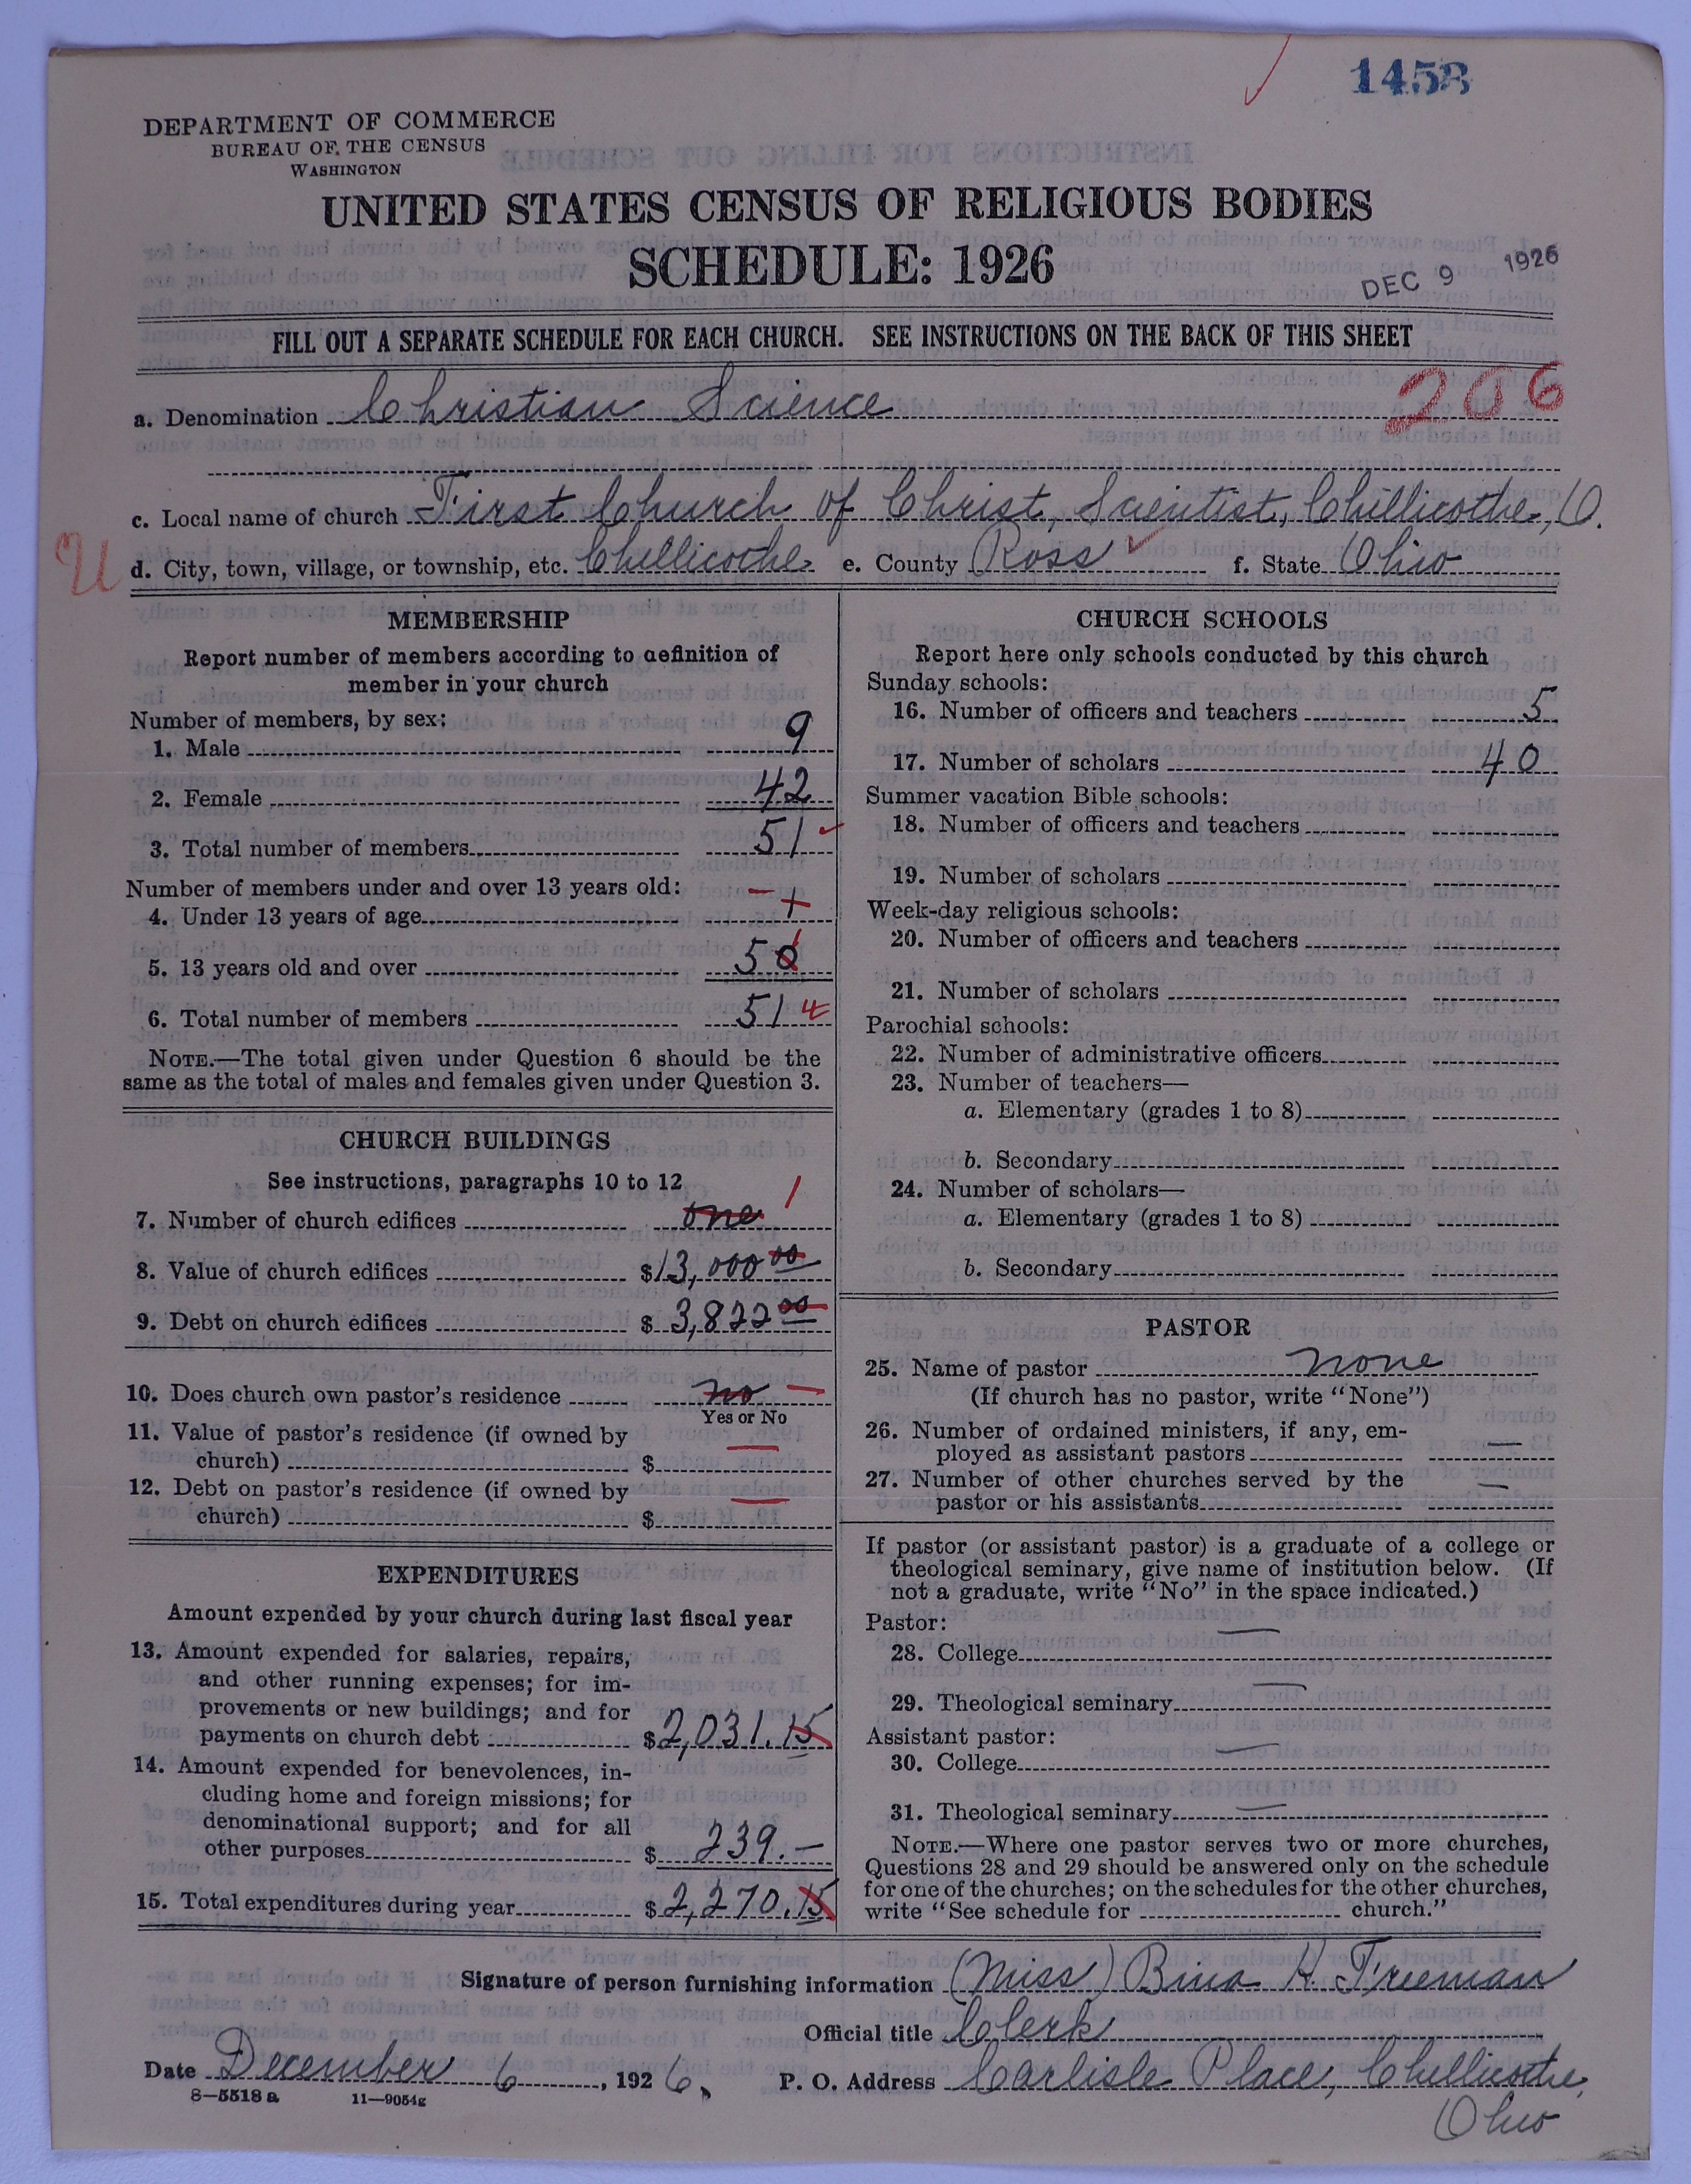 1458
DEPARTMENT OF COMMERCE
BUREAU OF THE CENSUS
WASHINGTON
UNITED STATES CENSUS OF RELIGIOUS BODIES
SCHEDULE: 1926
DEC 9 1926
FILL OUT A SEPARATE SCHEDULE FOR EACH CHURCH. SEE INSTRUCTIONS ON THE BACK OF THIS SHEET
206
a. Denomination Christian Science
c. Local name of church First Church of Christ, Scientist, Chillicothe, O.
U
d. City, town, village, or township, etc. Chillicothe e. County Ross f. State Ohio
MEMBERSHIP
Report number of members according to definition of
member in your church
Number of members, by sex:
1. Male 9
2. Female 42
3. Total number of members 51
Number of members under and over 13 years old:
4. Under 13 years of age
5. 13 years old and over 50
6. Total number of members 51
NOTE.—The total given under Question 6 should be the
same as the total of males and females given under Question 3.
CHURCH BUILDINGS
See instructions, paragraphs 10 to 12
7. Number of church edifices one 1
8. Value of church edifices $13,000 00
9. Debt on church edifices $3,822 00
10. Does church own pastor's residence no —
Yes or No
11. Value of pastor's residence (if owned by
church) $ —
12. Debt on pastor's residence (if owned by
church) $ —
EXPENDITURES
Amount expended by your church during last fiscal year
13. Amount expended for salaries, repairs,
and other running expenses; for im-
provements or new buildings; and for
payments on church debt $2,031.15
14. Amount expended for benevolences, in-
cluding home and foreign missions; for
denominational support; and for all
other purposes $ 239.—
15. Total expenditures during year $2,270.15
CHURCH SCHOOLS
Report here only schools conducted by this church
Sunday schools:
16. Number of officers and teachers 5
17. Number of scholars 40
Summer vacation Bible schools:
18. Number of officers and teachers
19. Number of scholars
Week-day religious schools:
20. Number of officers and teachers
21. Number of scholars
Parochial schools:
22. Number of administrative officers
23. Number of teachers—
a. Elementary (grades 1 to 8)
b. Secondary
24. Number of scholars—
a. Elementary (grades 1 to 8)
b. Secondary
PASTOR
25. Name of pastor None
(If church has no pastor, write "None")
26. Number of ordained ministers, if any, em-
ployed as assistant pastors —
27. Number of other churches served by the
pastor or his assistants —
If pastor (or assistant pastor) is a graduate of a college or
theological seminary, give name of institution below. (If
not a graduate, write "No" in the space indicated.)
Pastor:
28. College —
29. Theological seminary —
Assistant pastor:
30. College —
31. Theological seminary —
NOTE.—Where one pastor serves two or more churches,
Questions 28 and 29 should be answered only on the schedule
for one of the churches; on the schedules for the other churches,
write "See schedule for church."
Signature of person furnishing information (Miss) Bina H. Freeman
Official title Clerk
Date December 6, 1926. P. O. Address Carlisle Place, Chillicothe,
Ohio
8—5518 a 11—9054g